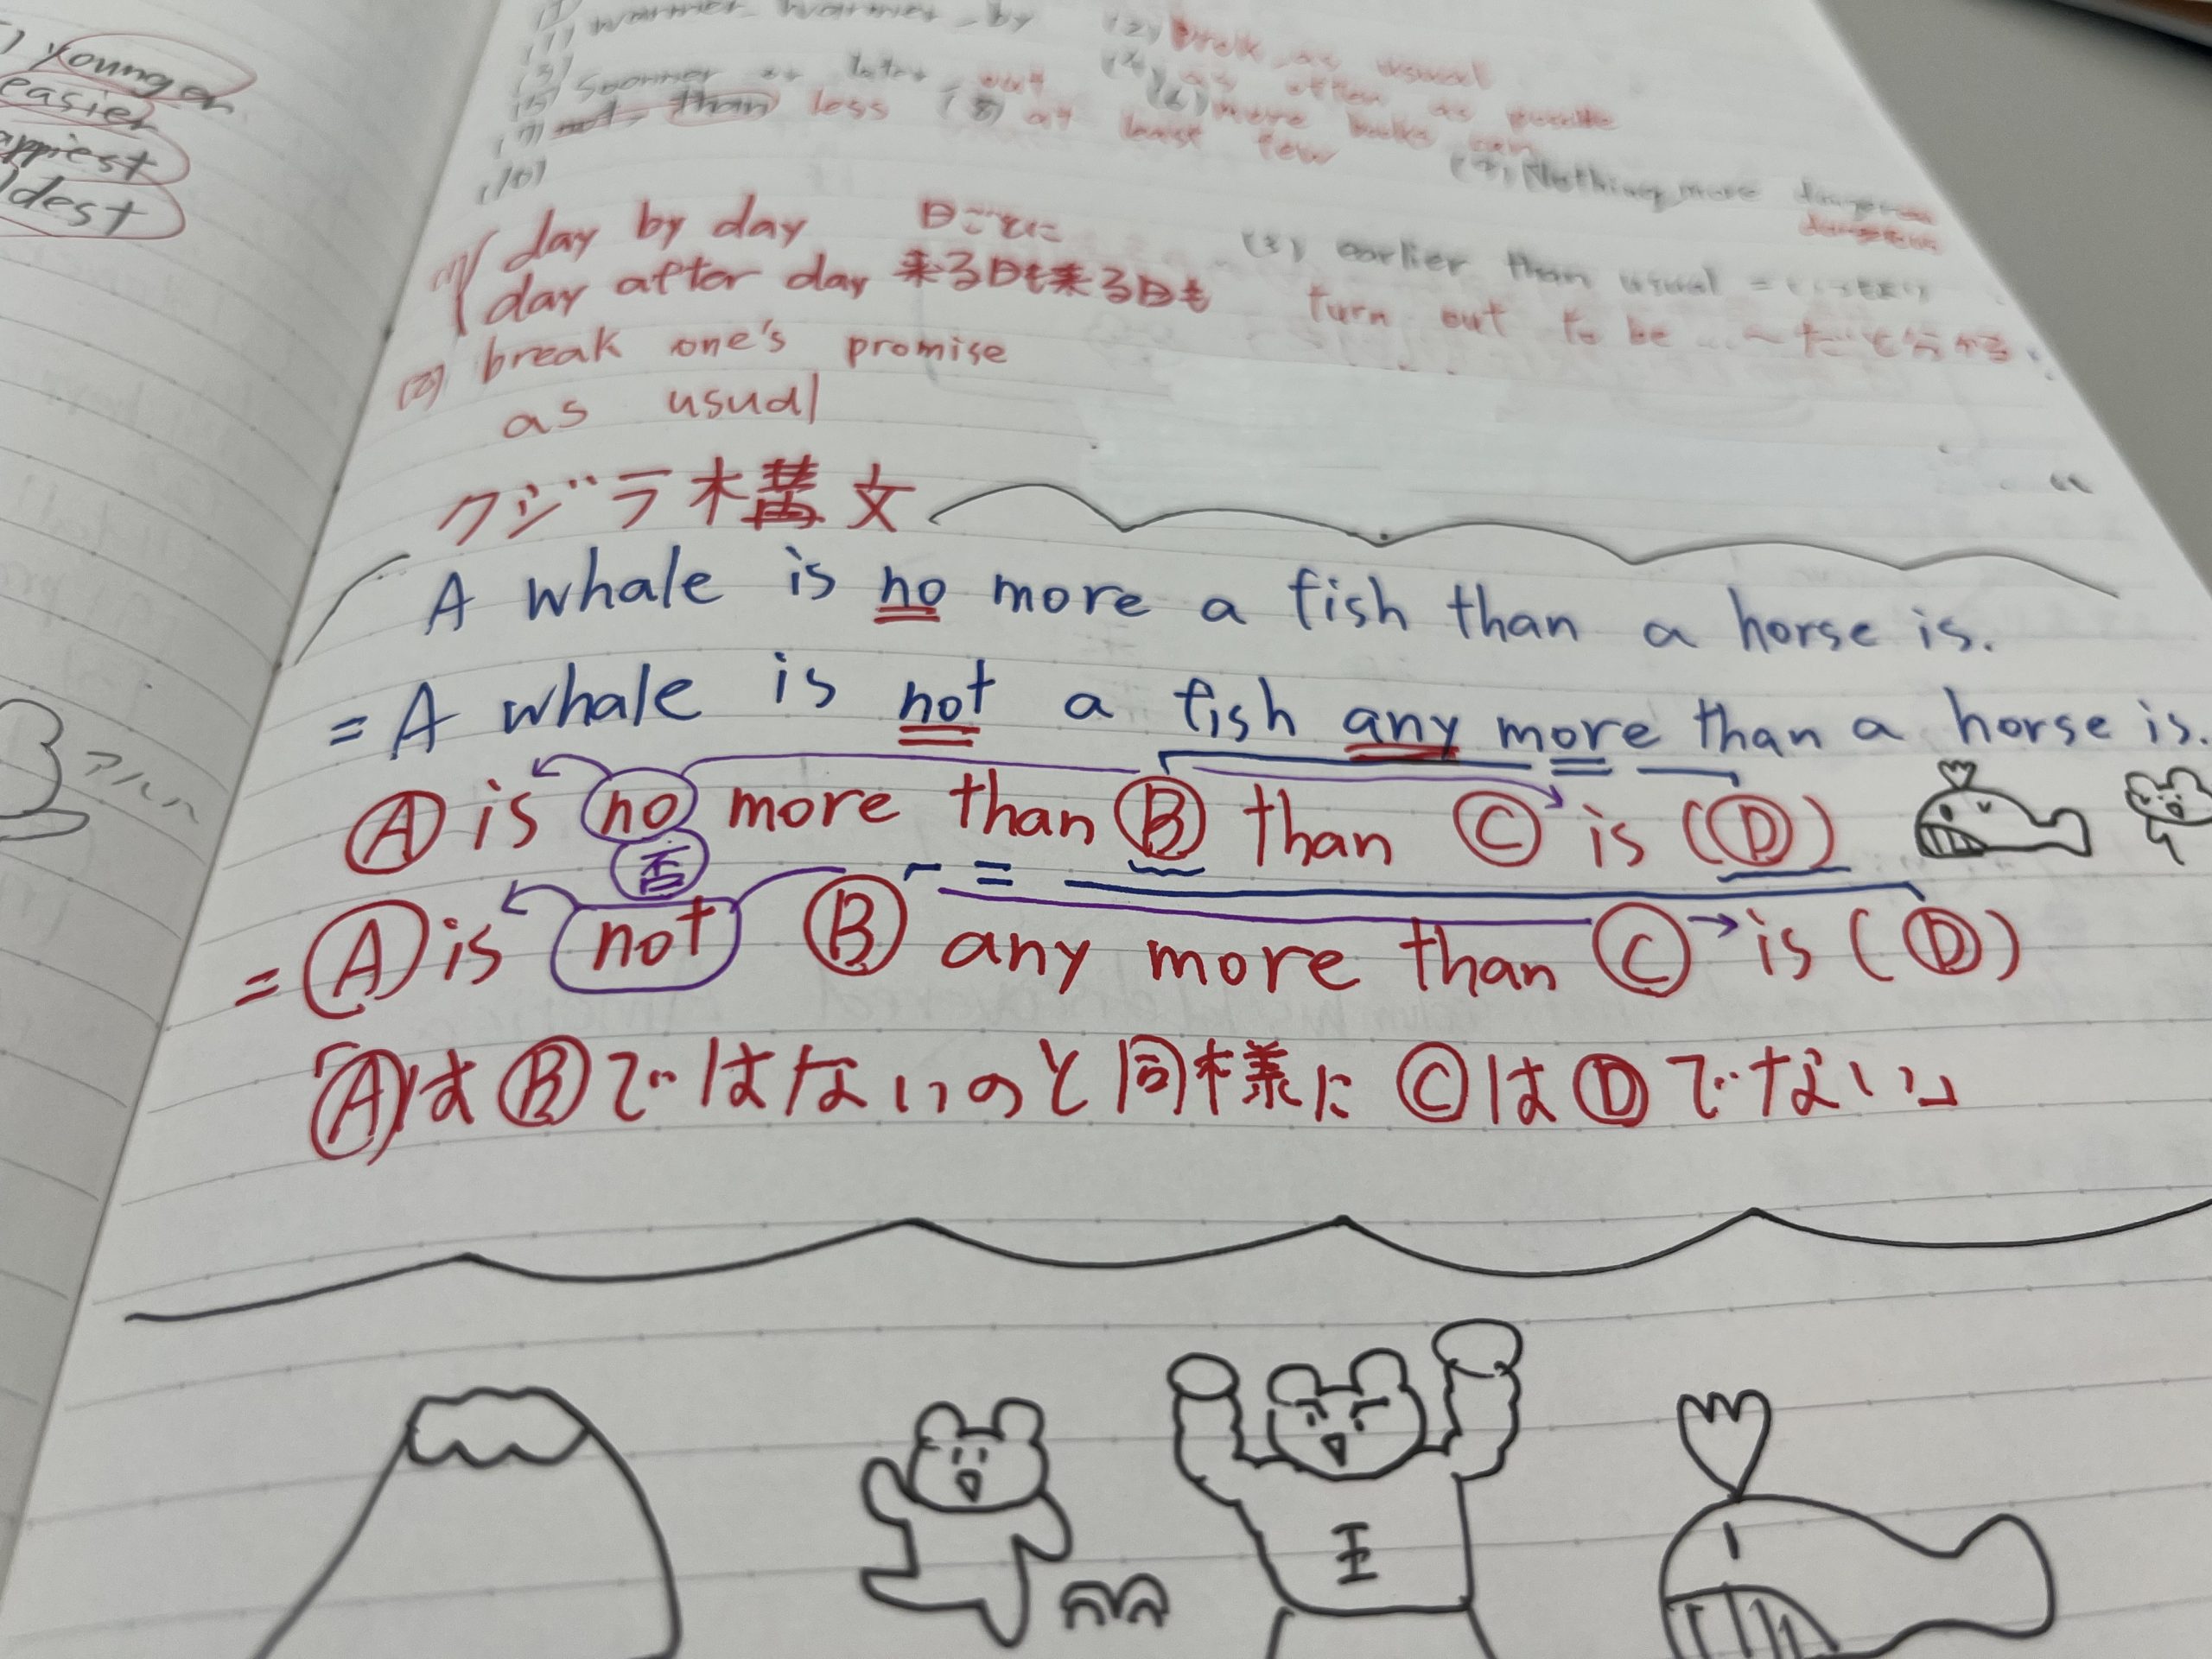 younger
easier
appiest
ldest
(1) warmer warmer by (2) break as usual
(3) sooner or later (4) as often as possible
(5) out (6) more books can
(7) not than less (8) at least few (9) Nothing more dangerous
(10)
(1) day by day 日ごとに
day after day 来る日も来る日も
(3) earlier than usual =
turn out to be ... ～だと分かる
(2) break one's promise
as usual
クジラ構文
A whale is no more a fish than a horse is.
= A whale is not a fish any more than a horse is.
Ⓐ is no more than Ⓑ than Ⓒ is (Ⓓ)
否
= Ⓐ is not Ⓑ any more than Ⓒ is (Ⓓ)
「ⒶはⒷではないのと同様にⒸはⒹでない」
王